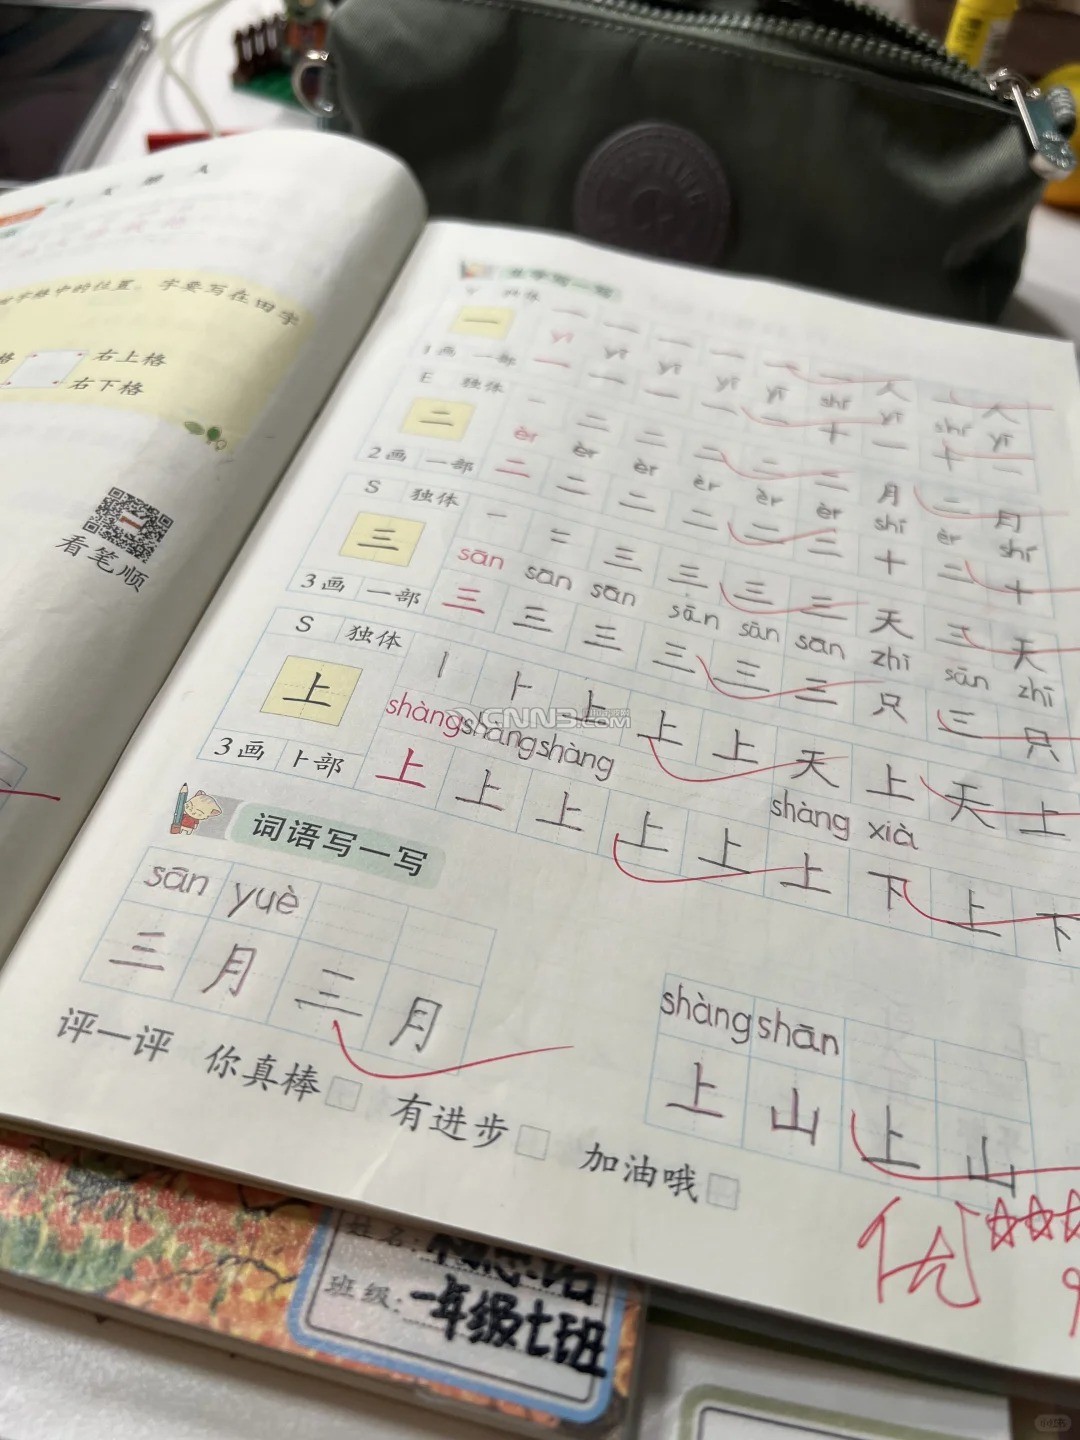 字格中的位置。字要写在田字
右上格
右下格
看笔顺
生字写一写
Y 独体
一
yī yī yī yī yī shí yī shí yī
1画 一部
一 一 一 一 一 十 一 十 一
E 独体
二
一 二 二 二 二 二 月 二 月
èr èr èr èr èr èr shí èr shí
2画 一部
二 二 二 二 二 二 十 二 十
S 独体
三
一 二 三 三 三 三 天 三 天
sān sān sān sān sān sān zhī sān zhī
3画 一部
三 三 三 三 三 三 只 三 只
S 独体
上
丨 ⺊ 上 上 上 天 上 天 上
shàng shàng shàng shàng xià
3画 卜部
上 上 上 上 上 上 下 上 下
CNN3.COM
词语写一写
sān yuè
三 月 三 月
shàng shān
上 山 上 山
评一评 你真棒 □ 有进步 □ 加油哦 □
优 ☆☆☆
姓名:
班级: 一年级七班